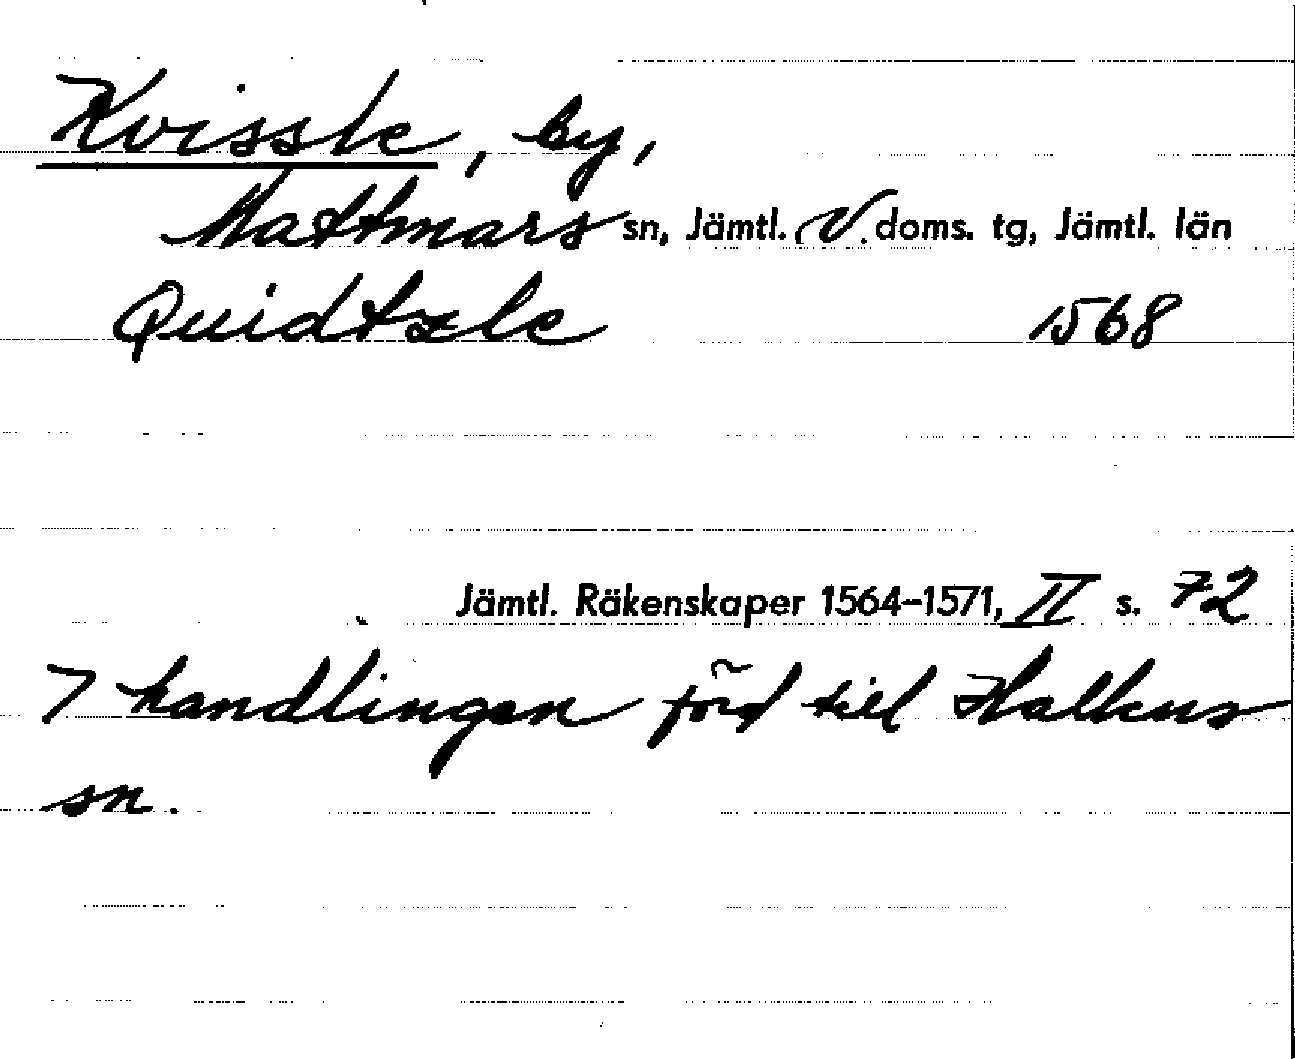 Kvissle, by,
Mattmars sn, Jämtl. V. doms. tg, Jämtl. län
Quidtzle 1568
Jämtl. Räkenskaper 1564–1571, II s. 72
I handlingen förd till Hallens
sn.